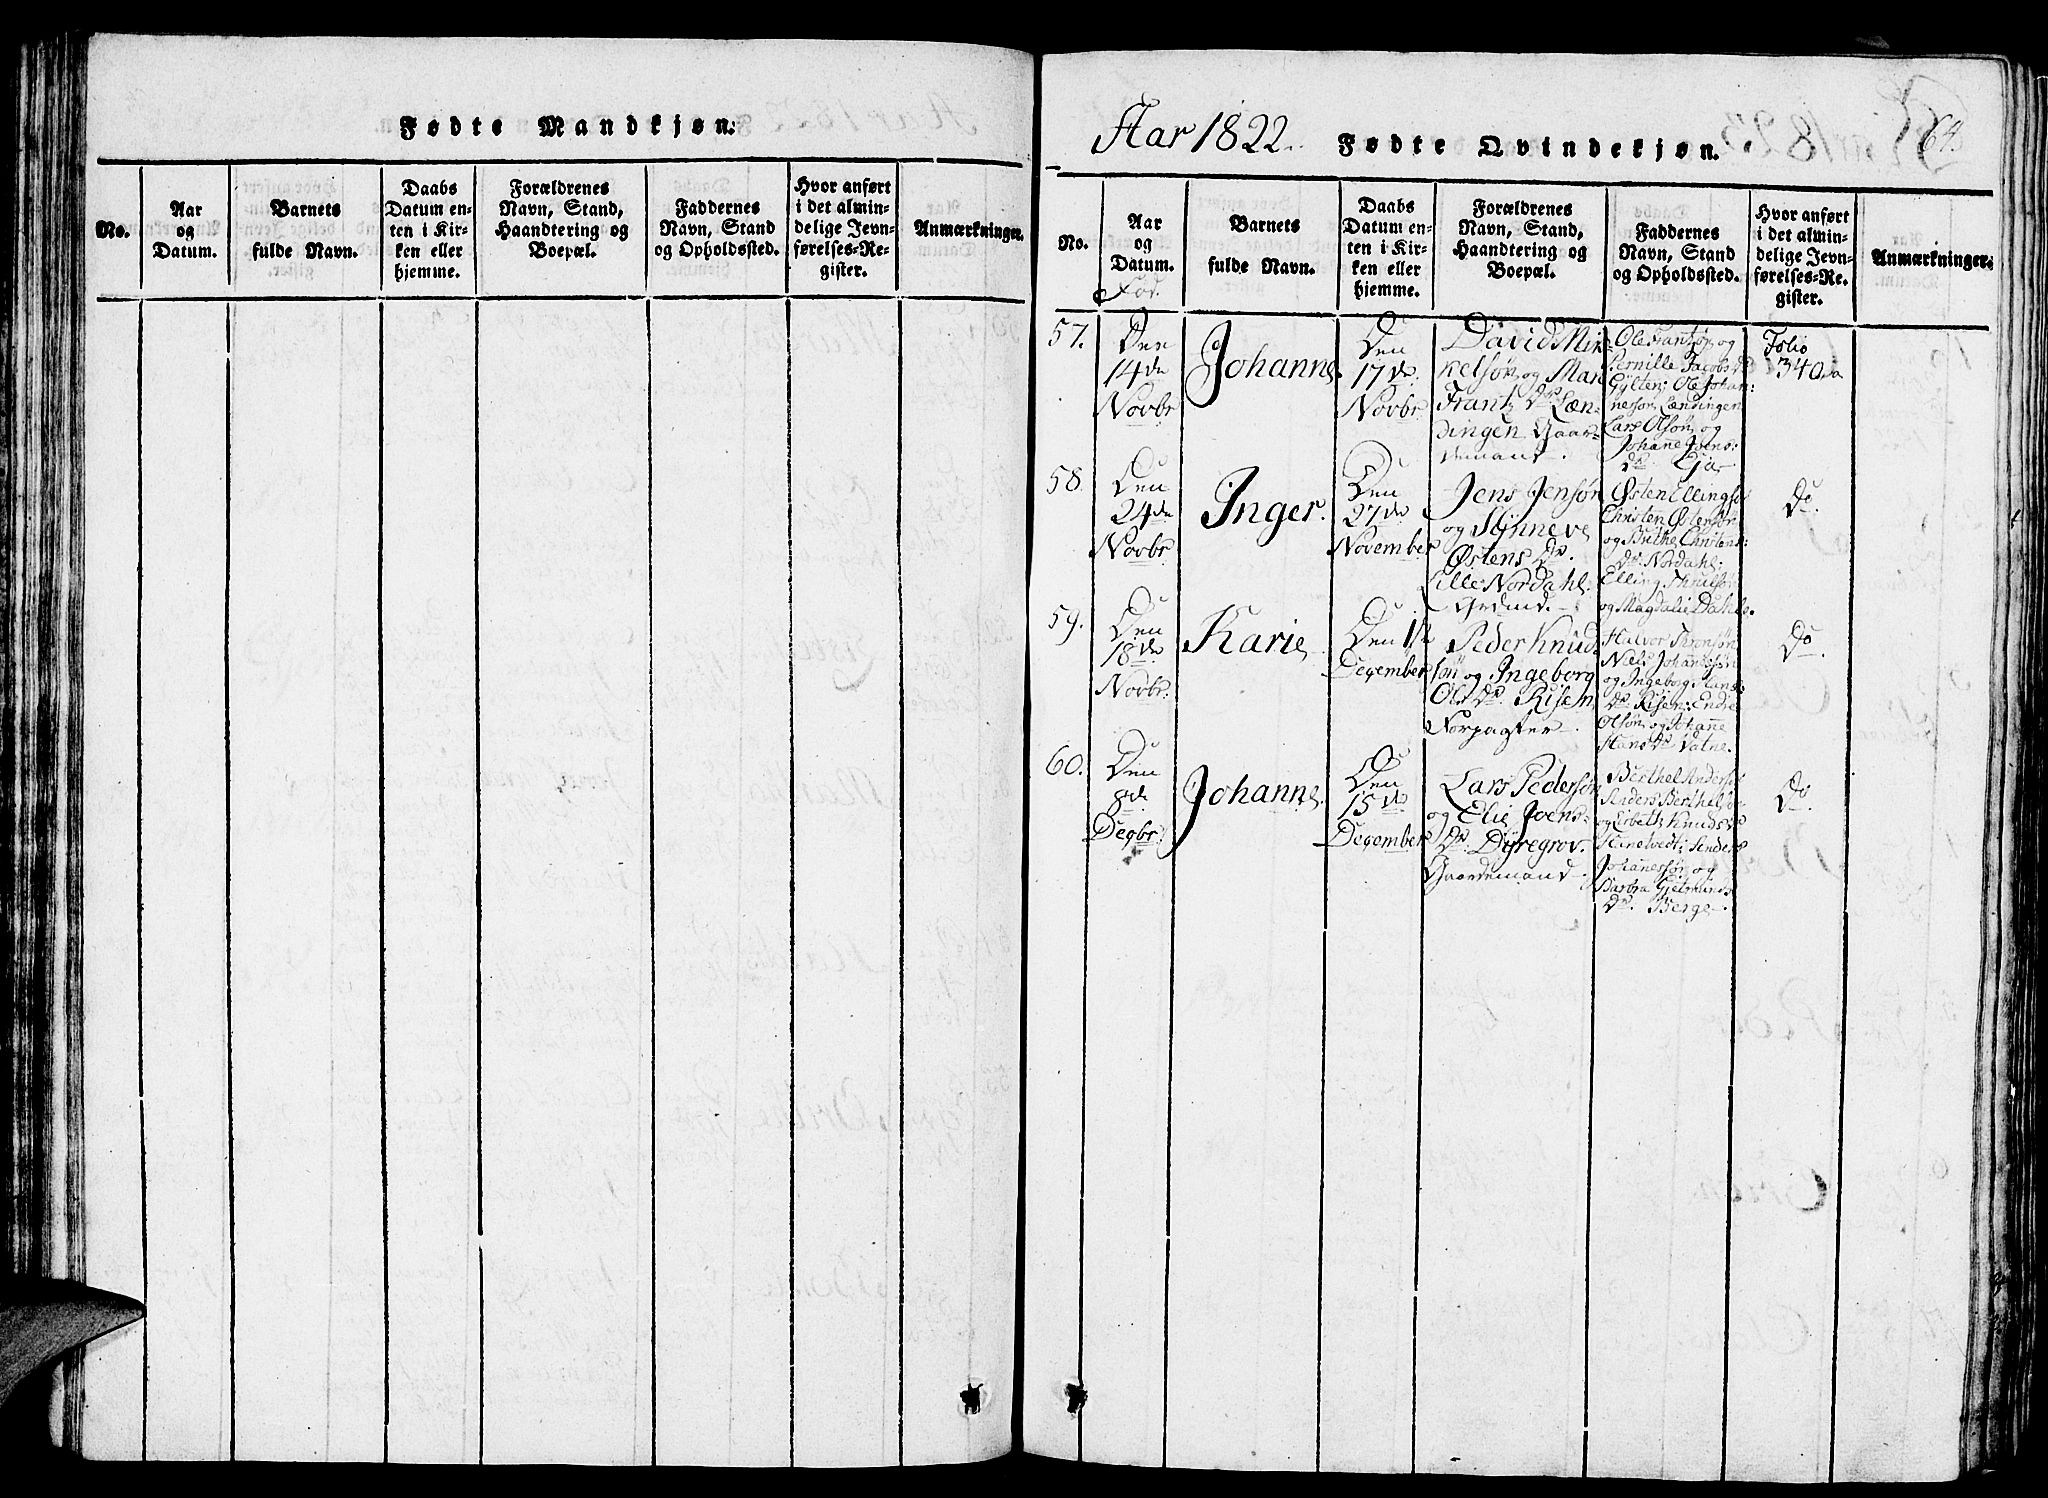 Fødte Mandkjøn.
No.
Aar
og
Datum.
Barnets
fulde Navn.
Daabs
Datum en-
ten i Kir-
ken eller
hjemme.
Forældrenes
Navn, Stand,
Haandtering og
Boepæl.
Faddernes
Navn, Stand
og Opholdssted.
Hvor anført
i det almin-
delige Jevn-
førelses-Re-
gister.
Anmærkninger.
Aar 1822. Fødte Qvindekjøn.
64
No.
Aar
og
Datum.
Fød.
Barnets
fulde Navn.
Daabs
Datum en-
ten i Kir-
ken eller
hjemme.
Forældrenes
Navn, Stand,
Haandtering og
Boepæl.
Faddernes
Navn, Stand
og Opholdssted.
Hvor anført
i det almin-
delige Jevn-
førelses-Re-
gister.
Anmærkninger.
57.
Den
14de
Novbr
Johanne
Den
17de
Novbr
David Mik-
kelsøn og Mari
Frantz Dr Læn-
dingen Gaar-
demand.
Ole Frantsøn og
Pernille Jacobs Dr
Gÿlten; Ole Johan-
nessøn Lændingen
Lars Olsøn og
Johane Joens-
Dr
Folio
340
58.
Den
24de
Novbr
Inger.
Den
27de
November
Jens Jensøn
og Sÿnneve
Østens Dr.
Lille Nordahl.
Østen Ellingsø
Christen Østensøn
og Brithe Christens-
Dr Nordahl;
Elling
og Magdalie Dahle.
Do.
59.
Den
18de
Novbr.
Karie
Den 1ste
December
Peder Knud
søn og Ingeborg
Ols Dr. Risem
Halvor
Niels Johannesøn
og Ingeborg Hans
Dr Risen; Endre
Olsøn og Johanne
Hans Dr Vatne.
Do.
60.
Den
8de
Decbr.
Johanne
Den
15de
December
Lars Pedersøn
og Elie Joens-
Dr. Dÿregrov.
Gaardemand.
Berthel Andersøn
Anders Berthelsøn
og Lisbeth Knuds Dr
Johanessøn og
Barbra Gjermunds
Dr. Berge.
Do.